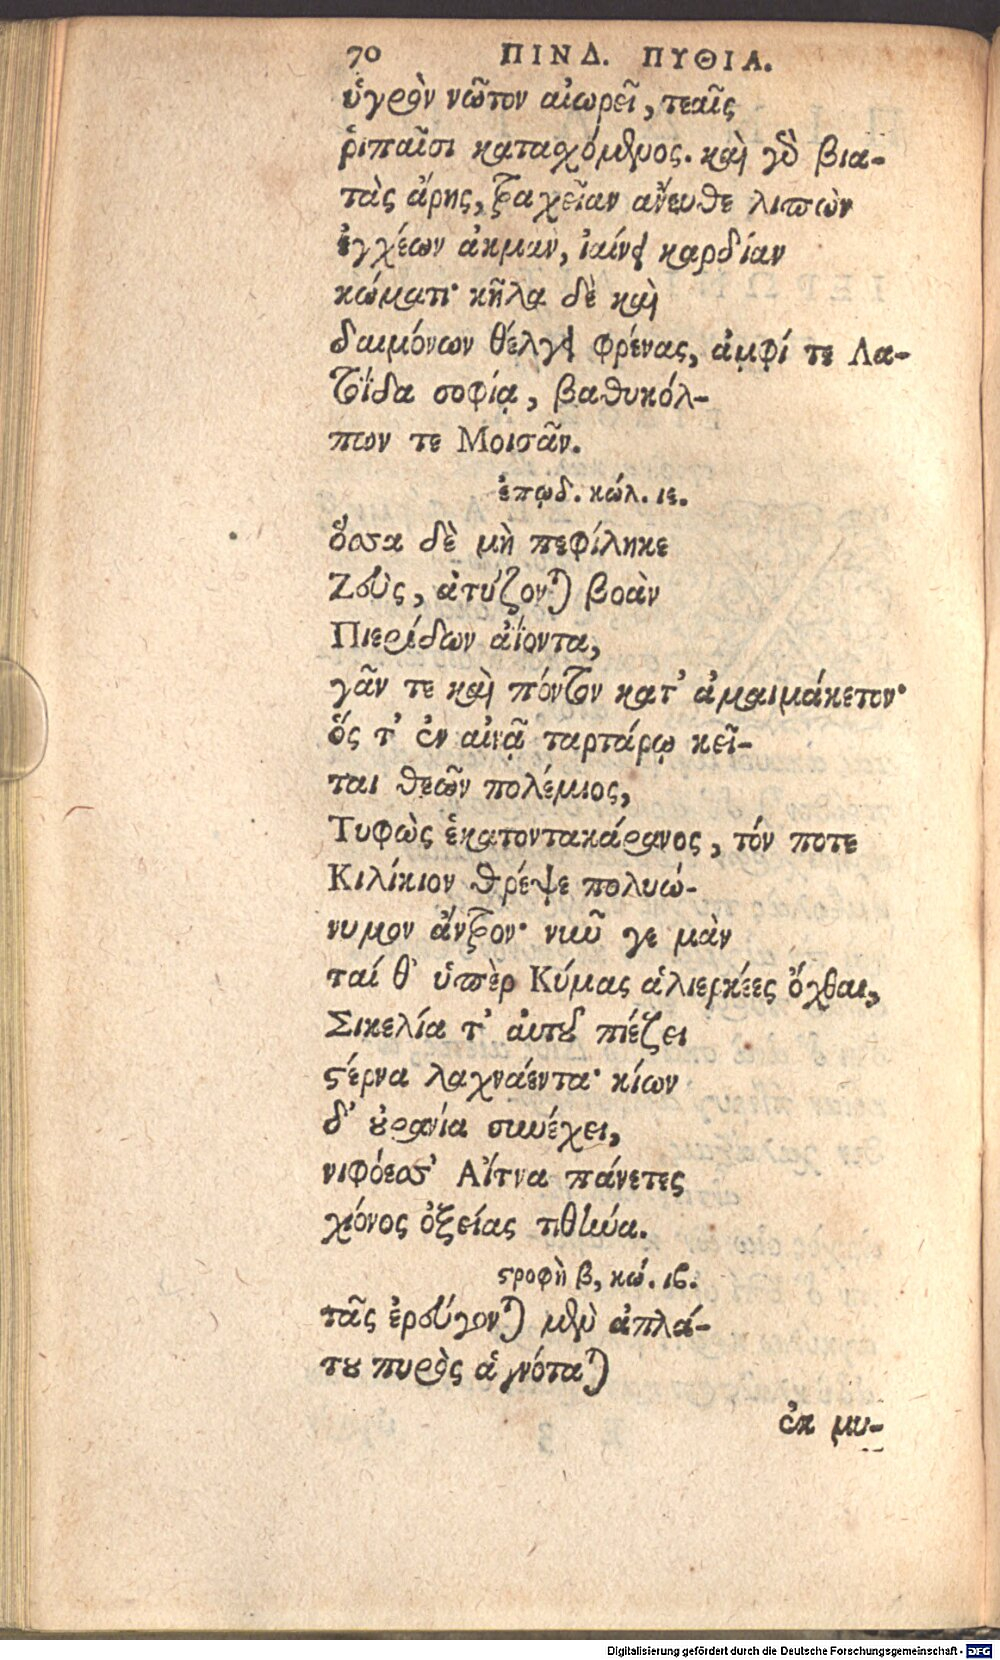 70 ΠΙΝΔ. ΠΥΘΙΑ.
ὑγρὸν νῶτον αἰωρεῖ, τεαῖς
ῥιπαῖσι κατασχόμενος. καὶ γὰ βια-
τὰς ἄρης, τραχεῖαν ἄνευθε λιπὼν
ἐγχέων ἀκμὰν, ἰαίνει καρδίαν
κώματι· κῆλα δὲ καὶ
δαιμόνων θέλγει φρένας, ἀμφί τε Λα-
τοΐδα σοφίᾳ, βαθυκόλ-
πων τε Μοισᾶν.
ἐπῳδ. κώλ. ιε.
ὅσσα δὲ μὴ πεφίληκε
Ζεὺς, ἀτύζονται βοὰν
Πιερίδων ἀΐοντα,
γᾶν τε καὶ πόντον κατ' ἀμαιμάκετον·
ὅς τ' ἐν αἰνᾷ ταρτάρῳ κεῖ-
ται θεῶν πολέμιος,
Τυφὼς ἑκατοντακάρανος, τόν ποτε
Κιλίκιον θρέψε πολυώ-
νυμον ἄντρον· νῦν γε μὰν
ταί θ' ὑπὲρ Κύμας ἁλιερκέες ὄχθαι,
Σικελία τ' αὐτοῦ πιέζει
στέρνα λαχνάεντα· κίων
δ' οὐρανία συνέχει,
νιφόεσσ' Αἴτνα πάνετες
χιόνος ὀξείας τιθήνα.
στροφὴ β, κώ. ιϛ.
τᾶς ἐρεύγονται μὲν ἀπλά-
του πυρὸς ἁγνόταται
ἐκ μυ-
Digitalisierung gefördert durch die Deutsche Forschungsgemeinschaft - DFG